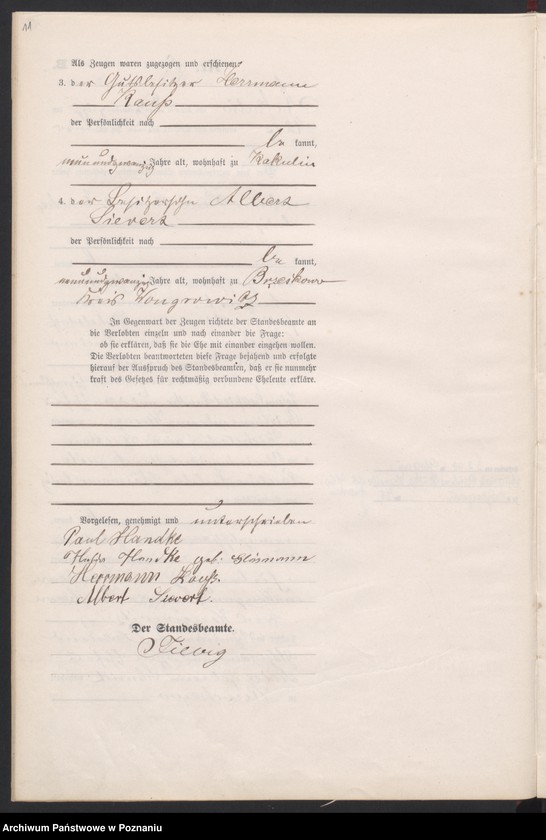 11
Als Zeugen waren zugezogen und erschienen:
3. der Gutsbesitzer Herrmann
Kauß
der Persönlichkeit nach
be kannt,
neunundzwanzig Jahre alt, wohnhaft zu Kakulin
4. der Besitzersohn Albert
Sievert
der Persönlichkeit nach
be kannt,
neunundzwanzig Jahre alt, wohnhaft zu
Kreis Wongrowitz
In Gegenwart der Zeugen richtete der Standesbeamte an
die Verlobten einzeln und nach einander die Frage:
ob sie erklären, daß sie die Ehe mit einander eingehen wollen.
Die Verlobten beantworteten diese Frage bejahend und erfolgte
hierauf der Ausspruch des Standesbeamten, daß er sie nunmehr
kraft des Gesetzes für rechtmäßig verbundene Eheleute erkläre.
Vorgelesen, genehmigt und unterschrieben
Paul Handke
Handke geb.
Herrmann Kauß.
Albert Sievert.
Der Standesbeamte.
Archiwum Państwowe w Poznaniu